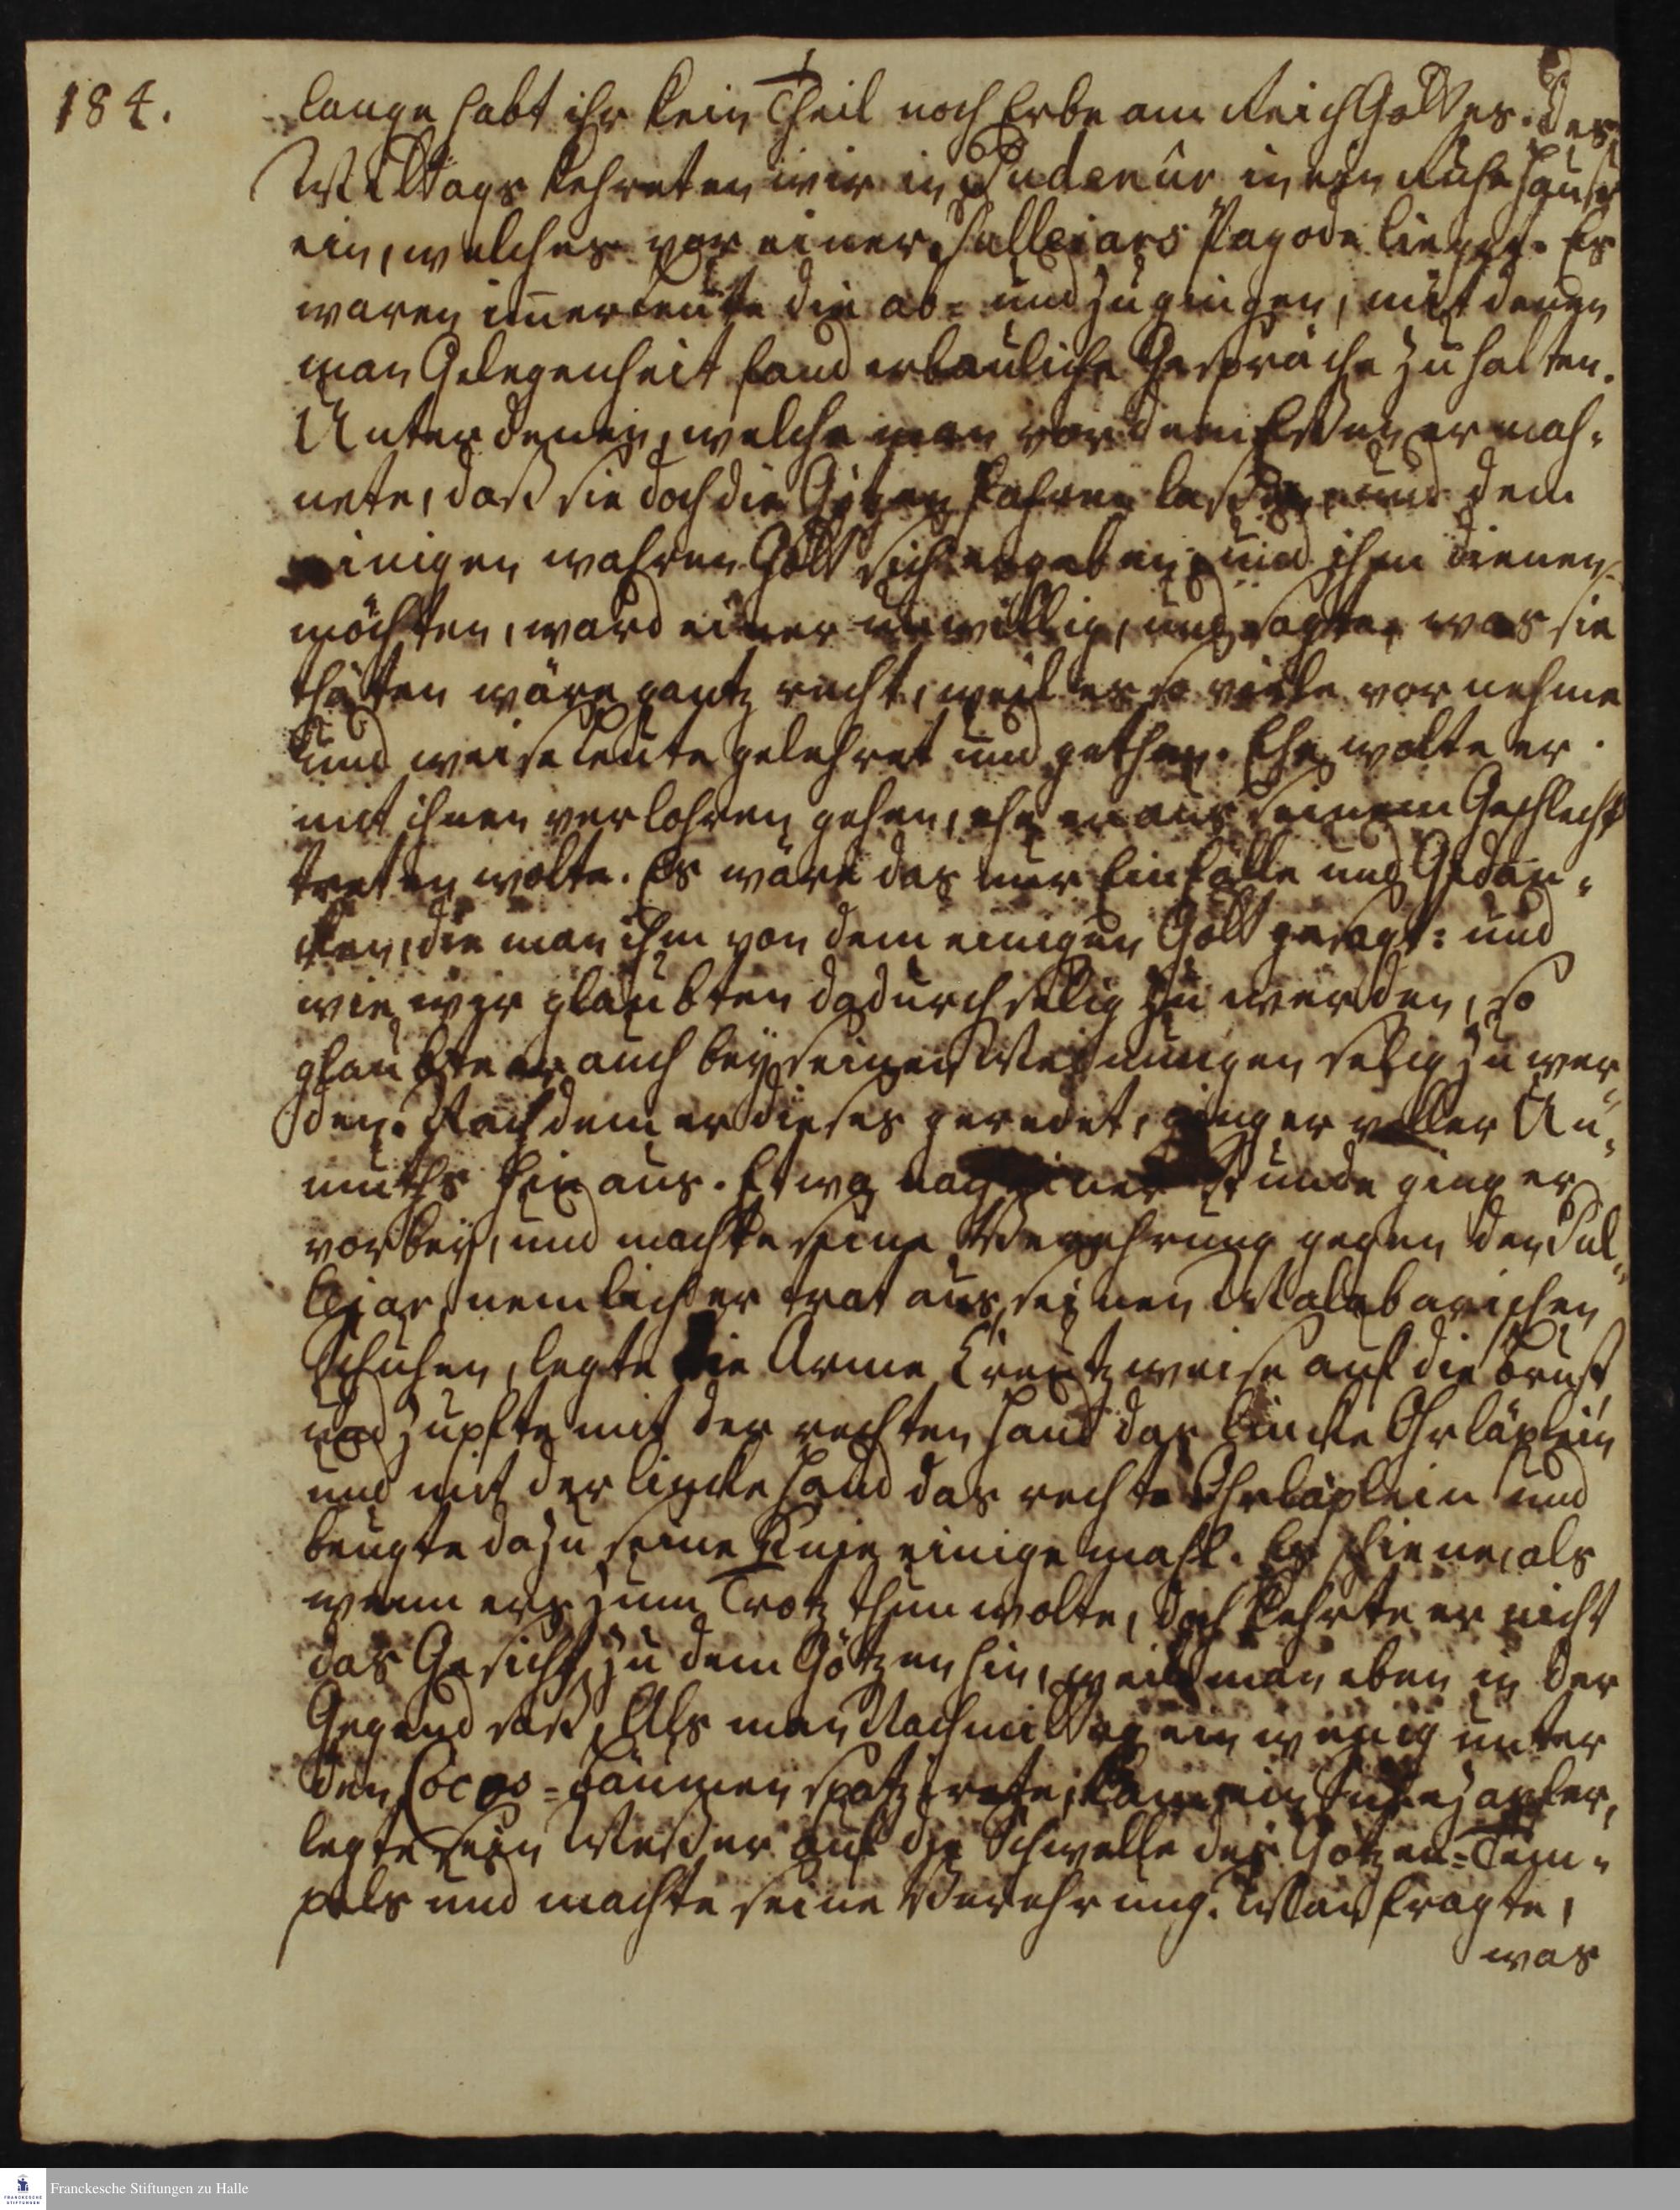 184.
lange habt ihr kein Theil noch Erbe am Reich Gottes. Des
Mittags kehreten wir in Pudenûr in ein Ruhe Hauß
ein, welches vor einer Pulleiars Pagode lieget. Es
waren im̄er Leute die ab- und zu gingen, mit denen
man Gelegenheit fand erbauliche Gespräche zu halten.
Unter denen, welche man vor dem Essen ermah-
nete, daß sie doch die Götzen fahren laßen, und dem
einigen wahren Gott sich ergeben, und ihm dienen
möchten, ward einer unwillig, und sagte, was sie
thäten wäre gantz recht, weil es so viele vornehme
und weise Leute gelehret und gethan. Ehe wolte er
mit ihnen verlohren gehen, ehe er aus seinem Geschlecht
treten wolte. Es wäre das nur Einfälle und Gedan-
cken, die man ihm von dem einigen Gott gesagt: und
wie wir glaubten dadurch selig zu werden, so
glaubte er auch bey seinen Meinungen selig zu wer-
den. Nachdem er dieses geredet, ging er voller Un-
muths hinaus. Etwa nach einer Stunde ging er
vorbey, und machte seine Verehrung gegen den Pul-
leiar, nemlich er trat aus seinen Malabarischen
Schuhen, legte die Arme Creutzweise auf die Brust
und zupfte mit der rechten Hand das lincke Ohrläplein
und mit der lincke Hand das rechte Ohrläplein und
beugte dazu seine Knie einige mahl. Es schiene, als
wenn ers zum Trotz thun wolte, doch kehrte er nicht
das Gesicht zu dem Götzen hin, weil man eben in der
Gegend saß. Als man Nachmittag ein wenig unter
den Cocos-Bäumen spatzirete, kam ein Surezapfer,
legte sein Meßer auf die Schwelle des Götzen-Tem-
pels und machte seine Verehrung. Man fragte,
was
Franckesche Stiftungen zu Halle